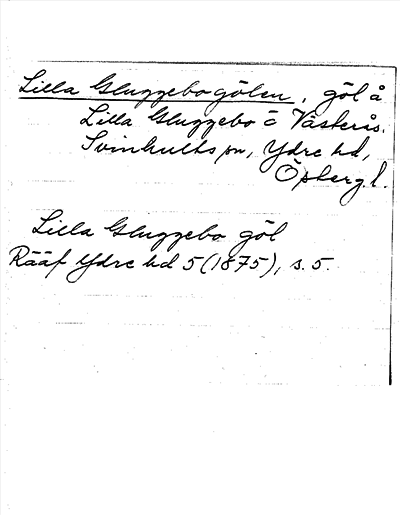 Lilla Gluggebogölen, göl å
Lilla Gluggebo o Västerås.
Svinhults sn, Ydre hd,
Ög. l.
Lilla Gluggebo göl
Rääf Ydre hd 5 (1875), s. 5.